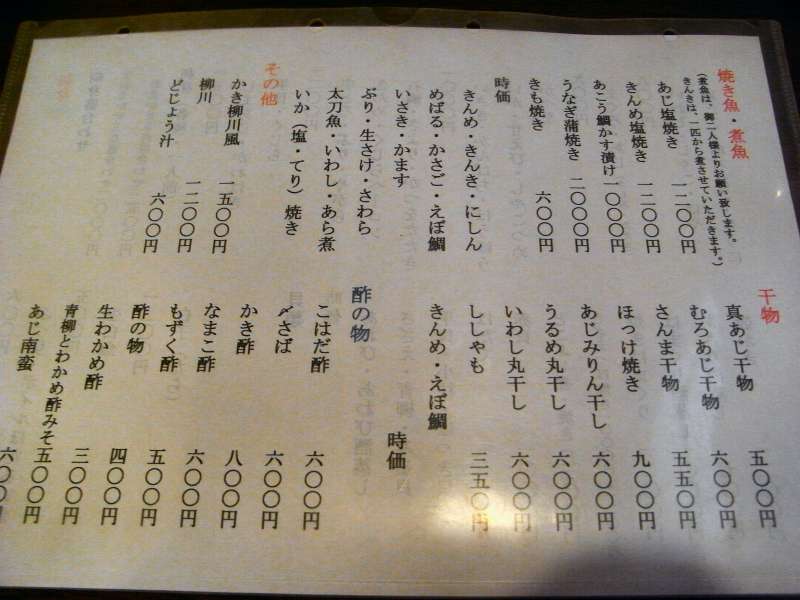 焼き魚・煮魚
(煮魚は、御二人様よりお願い致します。
きんきは、一匹から煮させていただきます。)
あじ塩焼き 一二〇〇円
きんめ塩焼き 一二〇〇円
あこう鯛かす漬け 一〇〇〇円
うなぎ蒲焼き 二〇〇〇円
きも焼き 六〇〇円
時価
きんめ・きんき・にしん
めばる・かさご・えぼ鯛
いさき・かます
ぶり・生さけ・さわら
太刀魚・いわし・あら煮
いか(塩・てり)焼き
その他
かき柳川風 一五〇〇円
柳川 一二〇〇円
どじょう汁 六〇〇円
干物
真あじ干物 五〇〇円
むろあじ干物 六〇〇円
さんま干物 五五〇円
ほっけ焼き 九〇〇円
あじみりん干し 六〇〇円
うるめ丸干し 六〇〇円
いわし丸干し 六〇〇円
ししゃも 三五〇円
きんめ・えぼ鯛 時価
酢の物
こはだ酢 六〇〇円
〆さば 六〇〇円
かき酢 八〇〇円
なまこ酢 六〇〇円
もずく酢 五〇〇円
酢の物 四〇〇円
生わかめ酢 三〇〇円
青柳とわかめ酢みそ 五〇〇円
あじ南蛮 六〇〇円